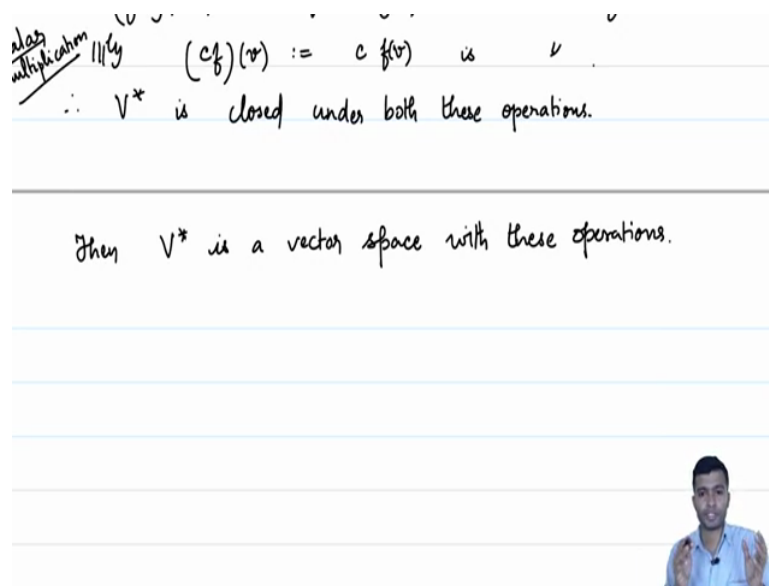 alar
ultiplication
|||ly (cf)(v) := c f(v) is " .
∴ V* is closed under both these operations.
Then V* is a vector space with these operations.